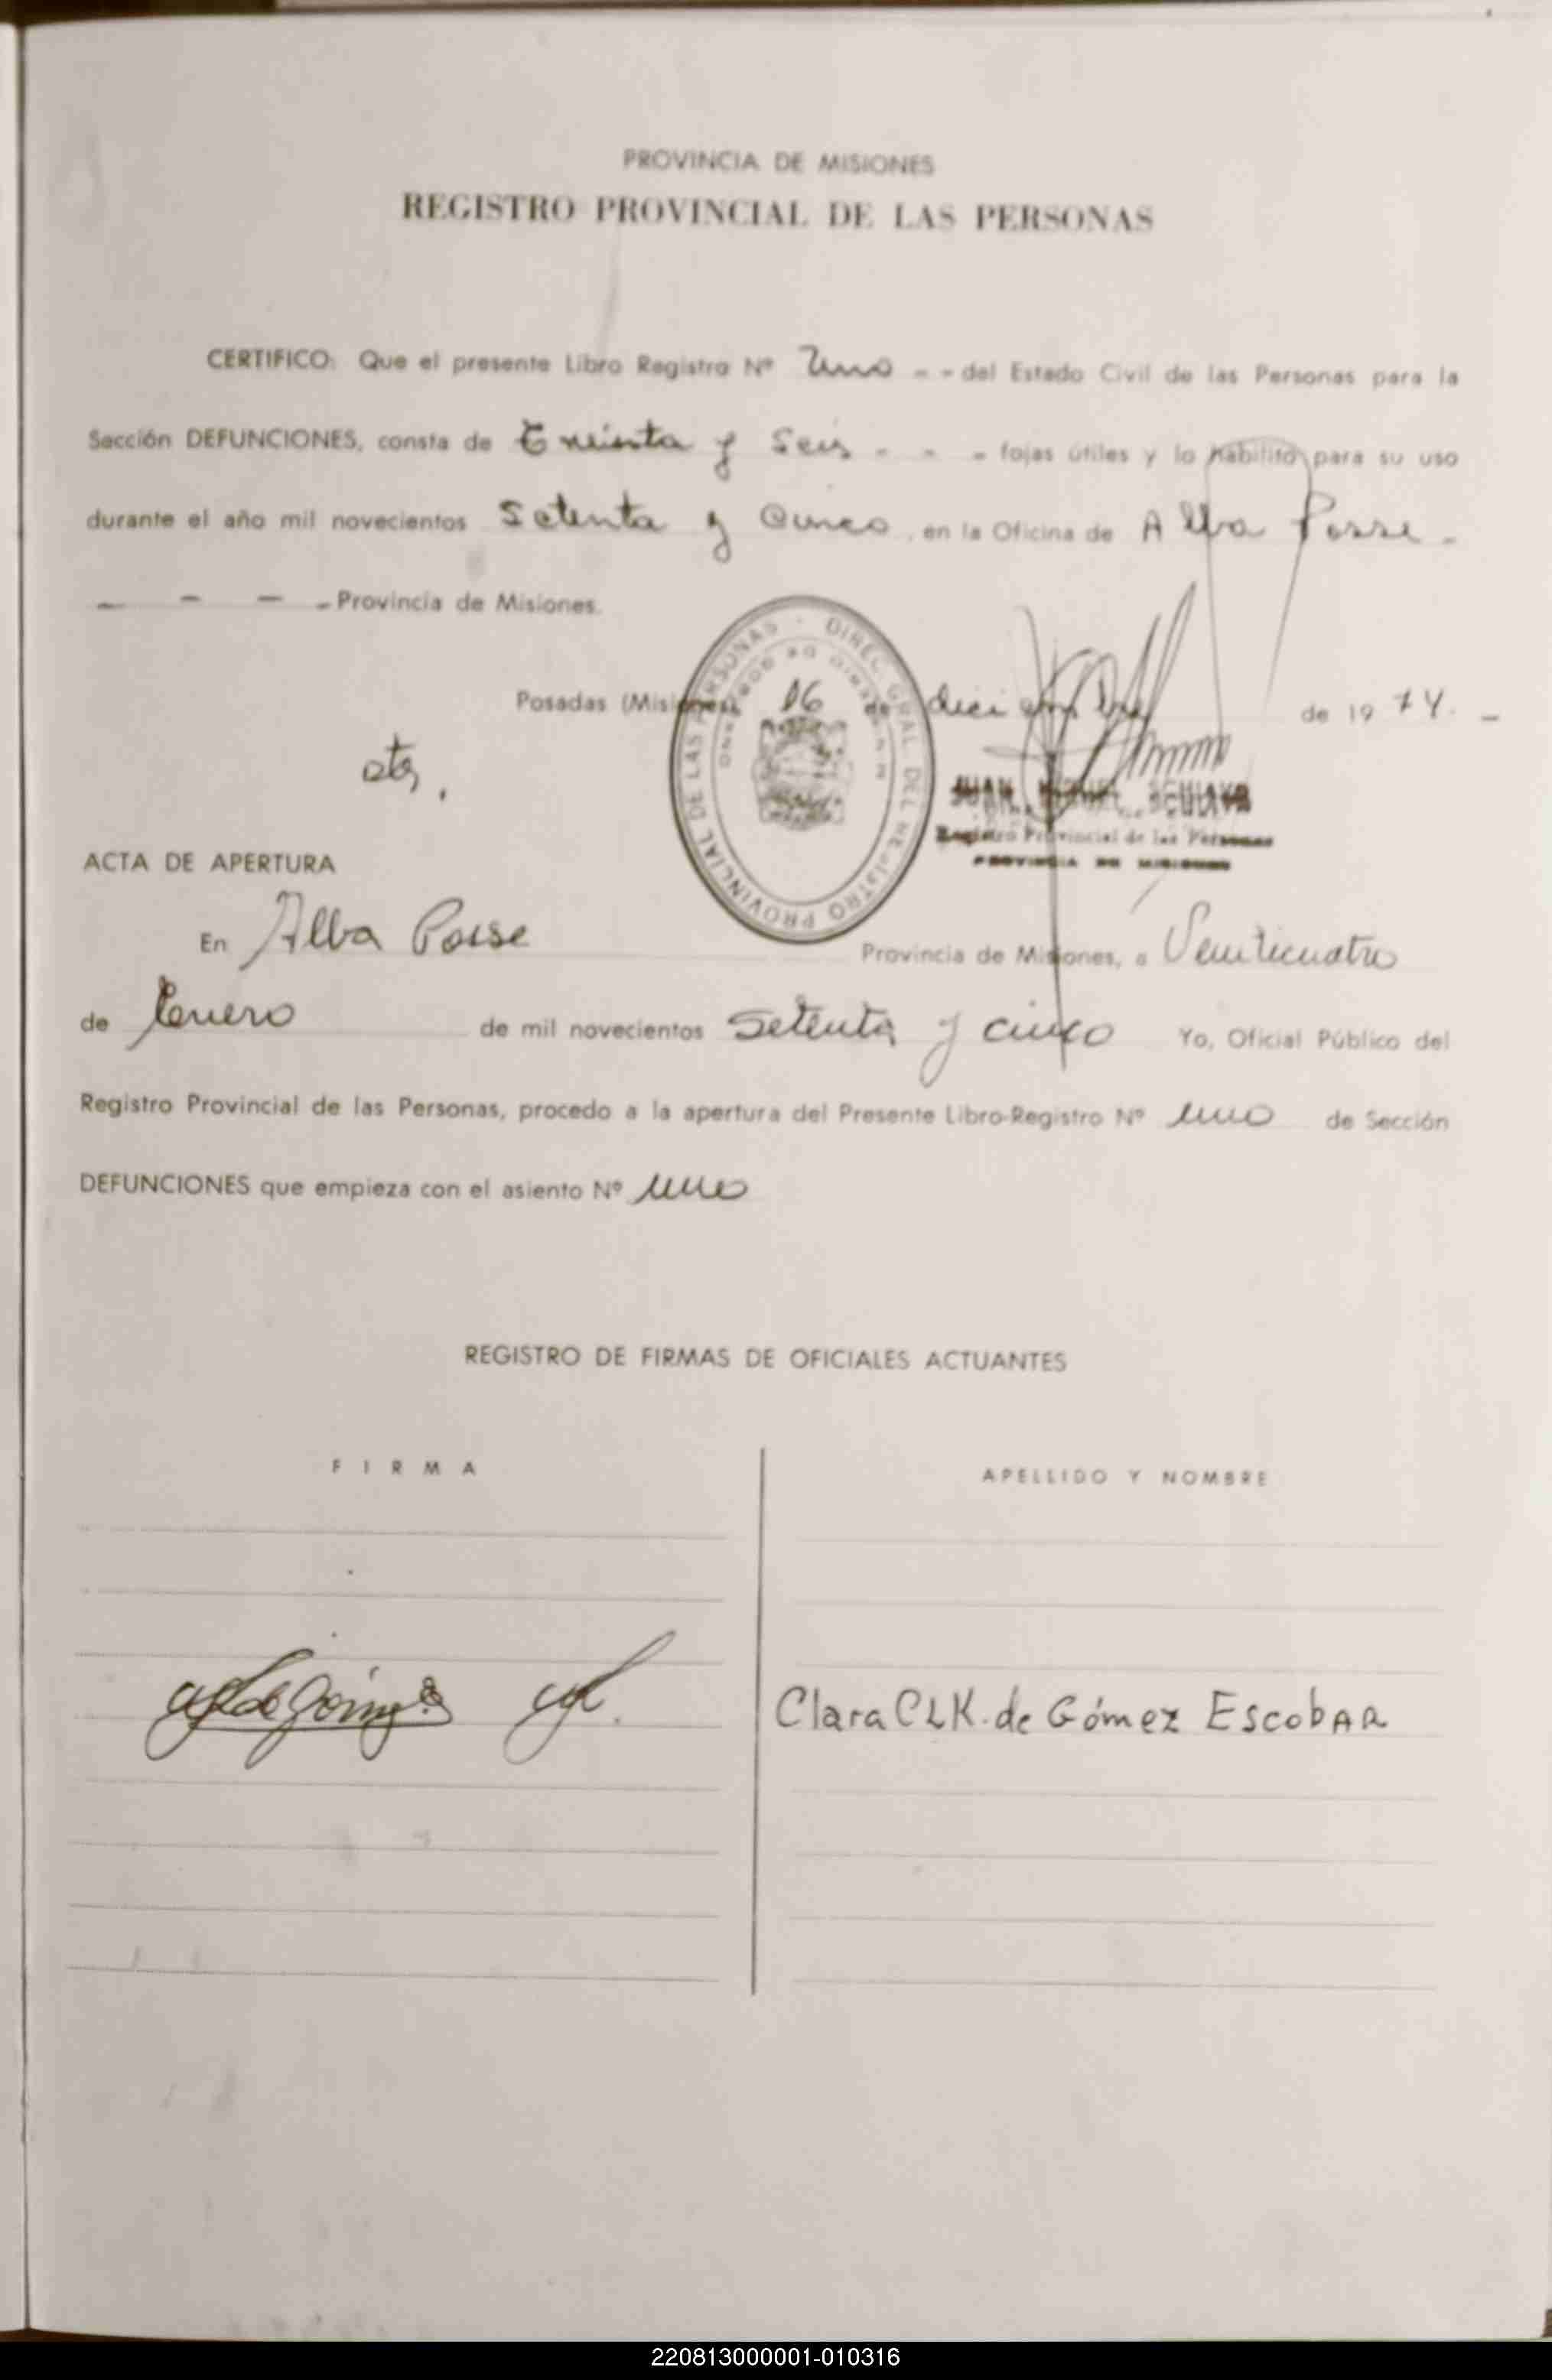 PROVINCIA DE MISIONES
REGISTRO PROVINCIAL DE LAS PERSONAS
CERTIFICO: Que el presente Libro Registro Nº Uno - - del Estado Civil de las Personas para la
Sección DEFUNCIONES, consta de Treinta y Seis - - - fojas útiles y lo habilito para su uso
durante el año mil novecientos Setenta y Cinco, en la Oficina de Alba Posse -
- - - - Provincia de Misiones.
Posadas (Misiones), 16 de diciembre de 1974. -
REGISTRO PROVINCIAL DE LAS PERSONAS - DIREC. GRAL. DEL
JUAN
Registro Provincial de las Personas
PROVINCIA DE MISIONES
ACTA DE APERTURA
En Alba Posse Provincia de Misiones, a Veinticuatro
de Enero de mil novecientos Setenta y cinco Yo, Oficial Público del
Registro Provincial de las Personas, procedo a la apertura del Presente Libro-Registro Nº uno de Sección
DEFUNCIONES que empieza con el asiento Nº uno
REGISTRO DE FIRMAS DE OFICIALES ACTUANTES
FIRMA
APELLIDO Y NOMBRE
Clara CLK. de Gómez Escobar
220813000001-010316